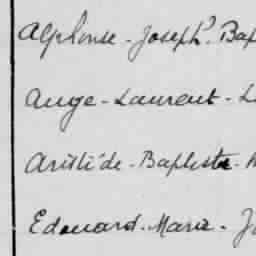 Alphonse - Joseph. Bap
Ange - Laurent - L
Aristide - Baptiste -
Edouard. Marie. J